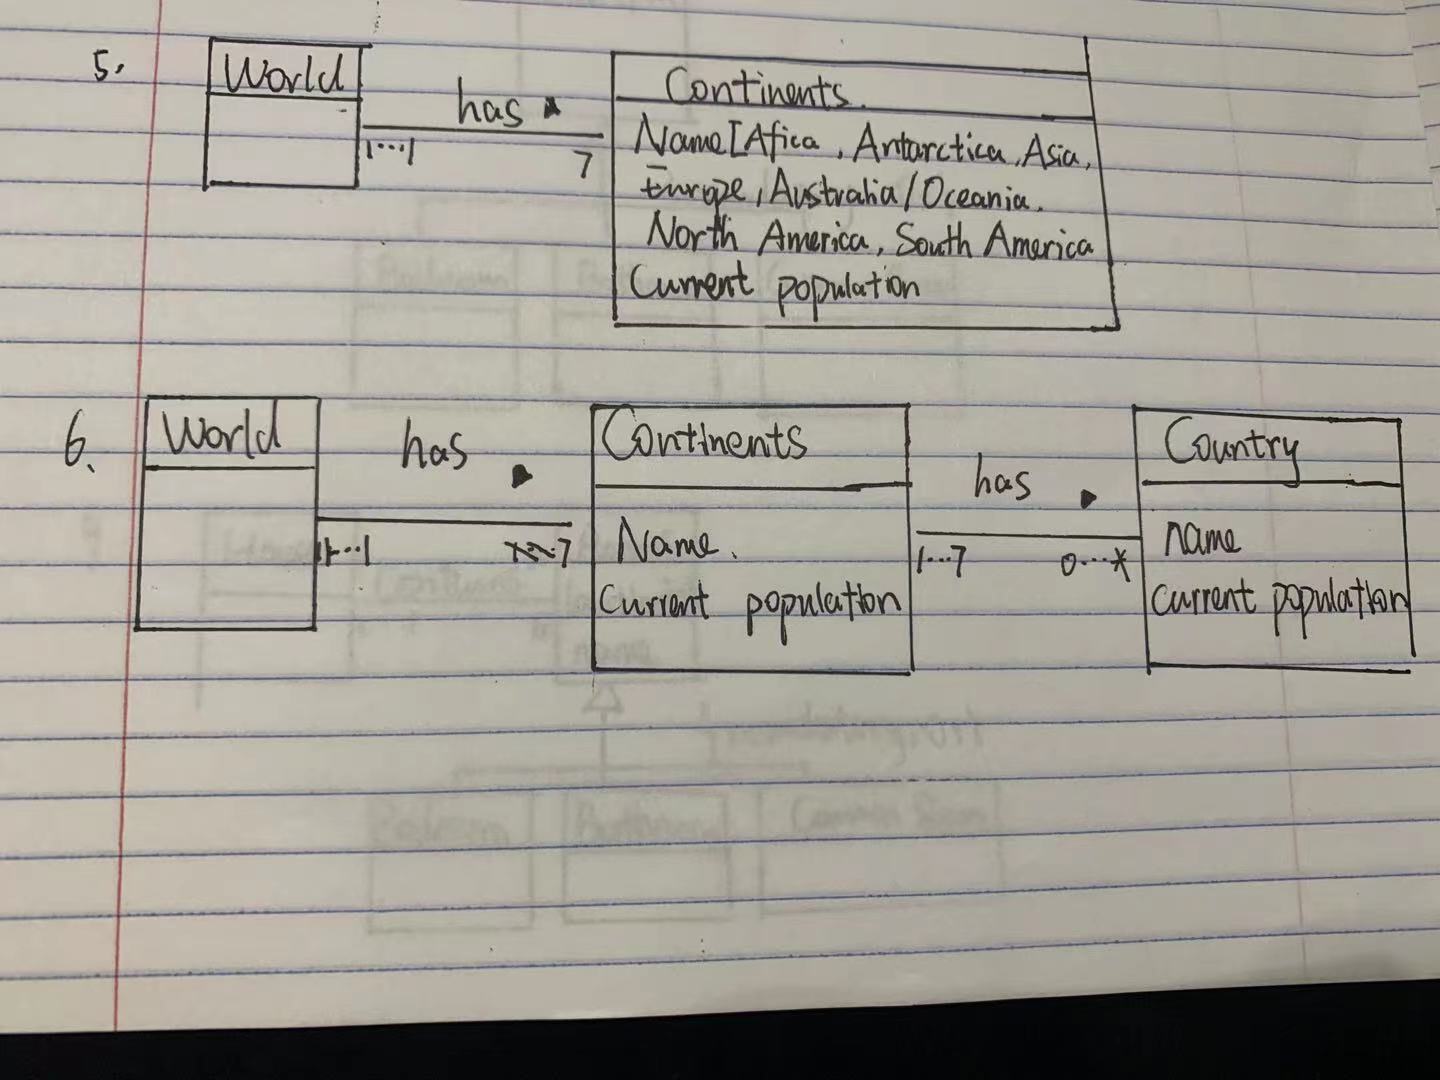 5.
World
has
1...1
7
Continents.
Name[Africa, Antarctica, Asia,
Europe, Australia/Oceania.
North America, South America
Current population
6.
World
has
1...1
7
Continents
Name.
Current population
has
1...7
0...*
Country
name
Current population